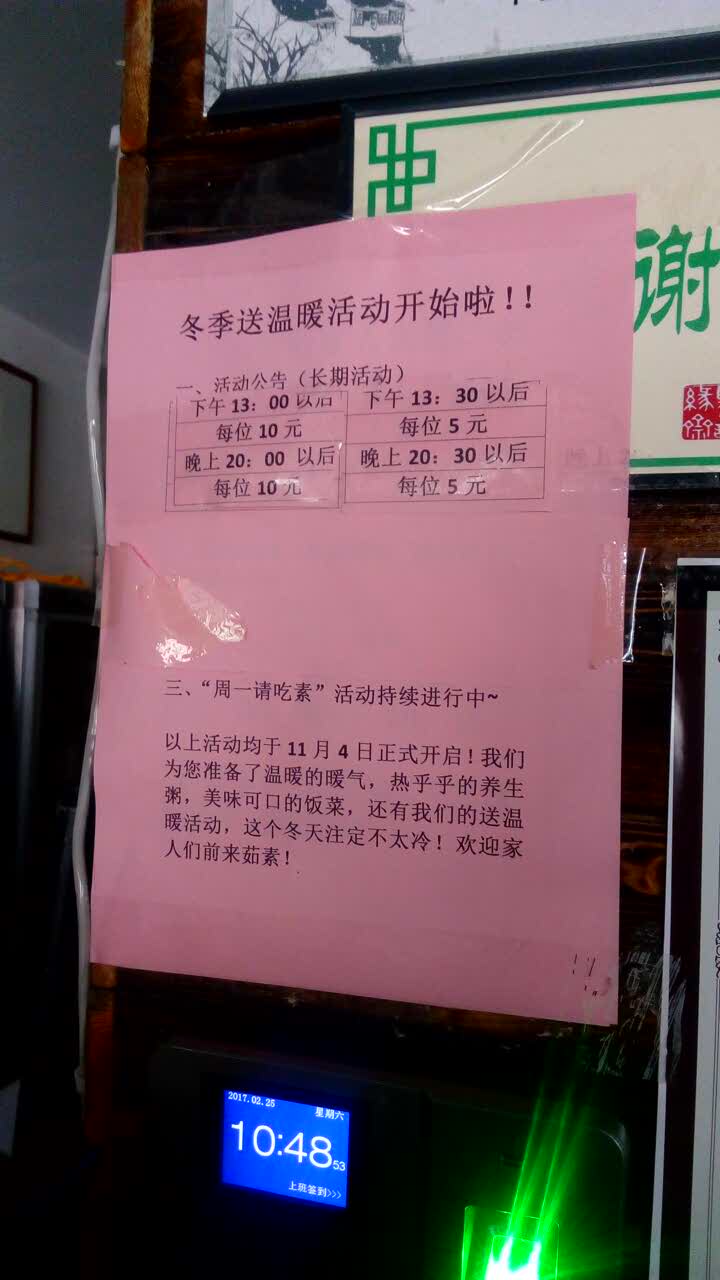 谢
冬季送温暖活动开始啦!!
一、活动公告（长期活动）
下午 13：00 以后 下午 13：30 以后
每位 10 元 每位 5 元
晚上 20：00 以后 晚上 20：30 以后
每位 10 元 每位 5 元
三、“周一请吃素”活动持续进行中~
以上活动均于 11 月 4 日正式开启！我们
为您准备了温暖的暖气，热乎乎的养生
粥，美味可口的饭菜，还有我们的送温
暖活动，这个冬天注定不太冷！欢迎家
人们前来茹素！
2017.02.25 星期六
10:48 53
上班签到>>>